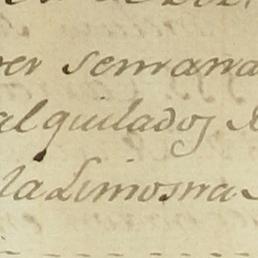 semana
alquilados
la Limosna